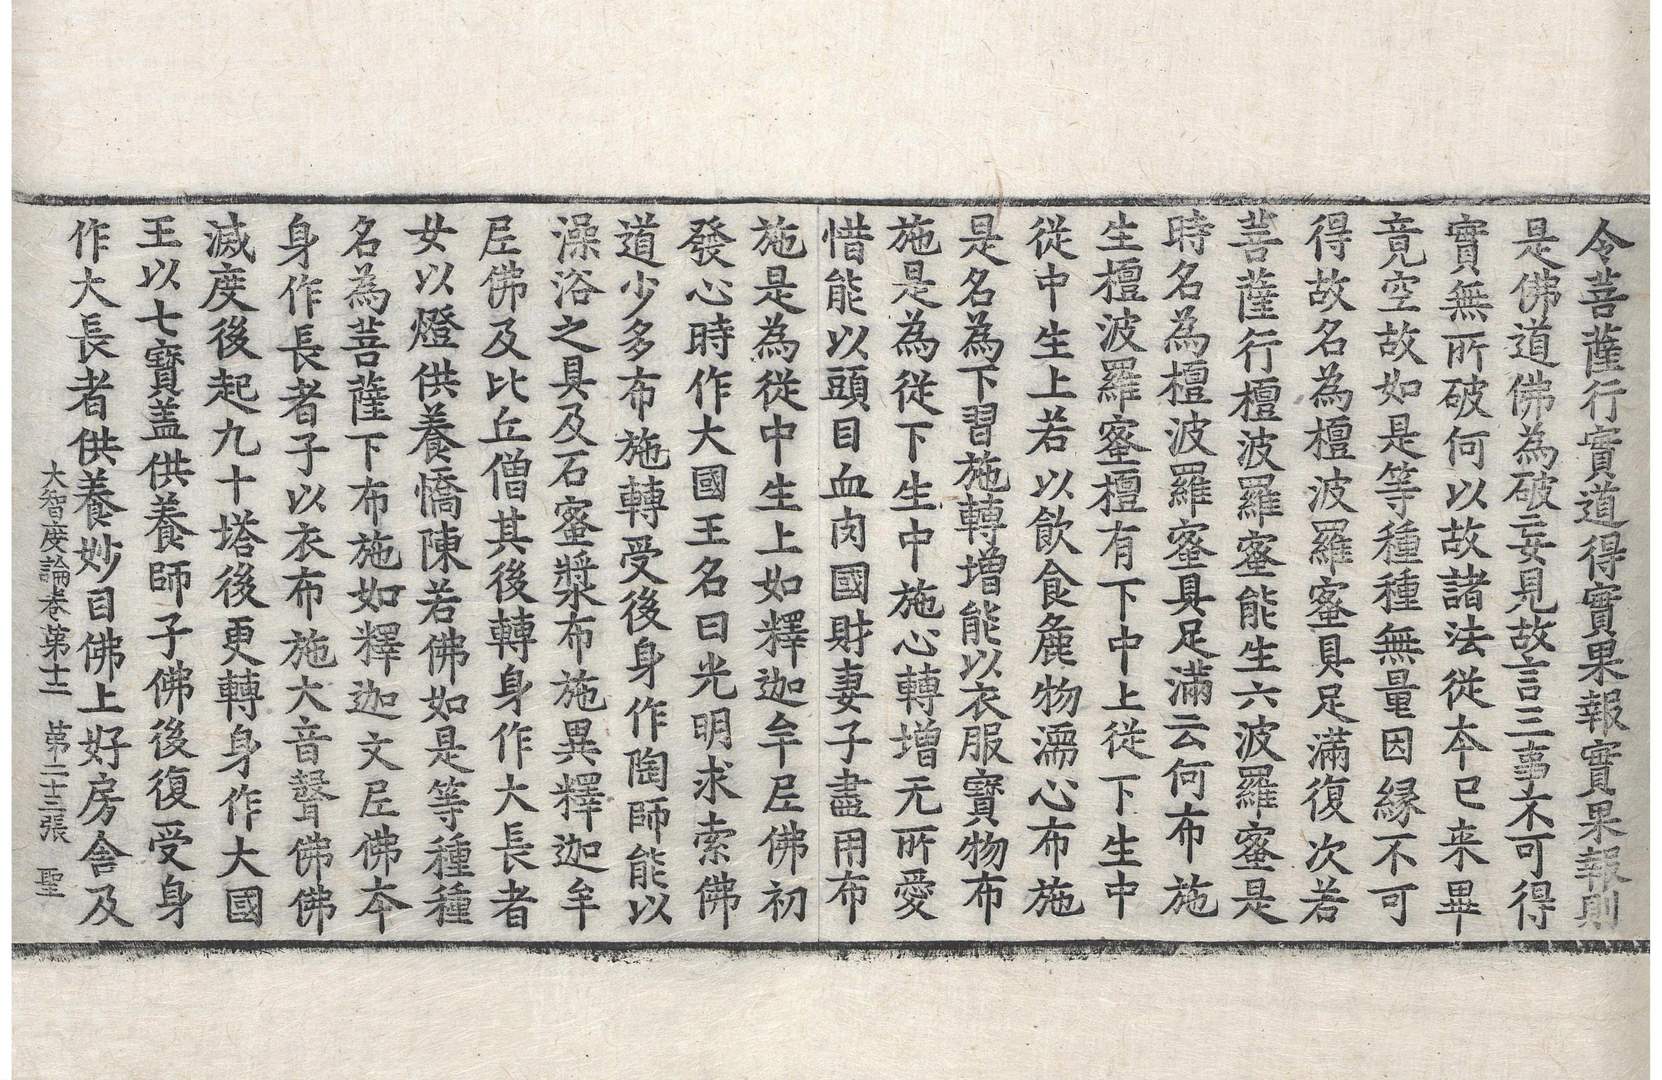 令菩薩行實道得實果報實果報則
是佛道佛為破妄見故言三事不可得
實無所破何以故諸法從夲已来畢
竟空故如是等種種無量因縁不可
得故名為檀波羅蜜具足滿復次若
菩薩行檀波羅蜜能生六波羅蜜是
時名為檀波羅蜜具足滿云何布施
生檀波羅蜜檀有下中上從下生中
從中生上若以飲食麁物濡心布施
是名為下習施轉增能以衣服寶物布
施是為從下生中施心轉增无所愛
惜能以頭目血肉國財妻子盡用布
施是為從中生上如釋迦牟尼佛初
發心時作大國王名曰光明求索佛
道少多布施轉受後身作陶師能以
澡浴之具及石蜜漿布施異釋迦牟
尼佛及比丘僧其後轉身作大長者
女以燈供養憍陳若佛如是等種種
名為菩薩下布施如釋迦文尼佛夲
身作長者子以衣布施大音聲佛佛
滅度後起九十塔後更轉身作大國
王以七寶盖供養師子佛後復受身
作大長者供養妙目佛上好房舍及
大智度論卷苐十二 苐二十三張 聖